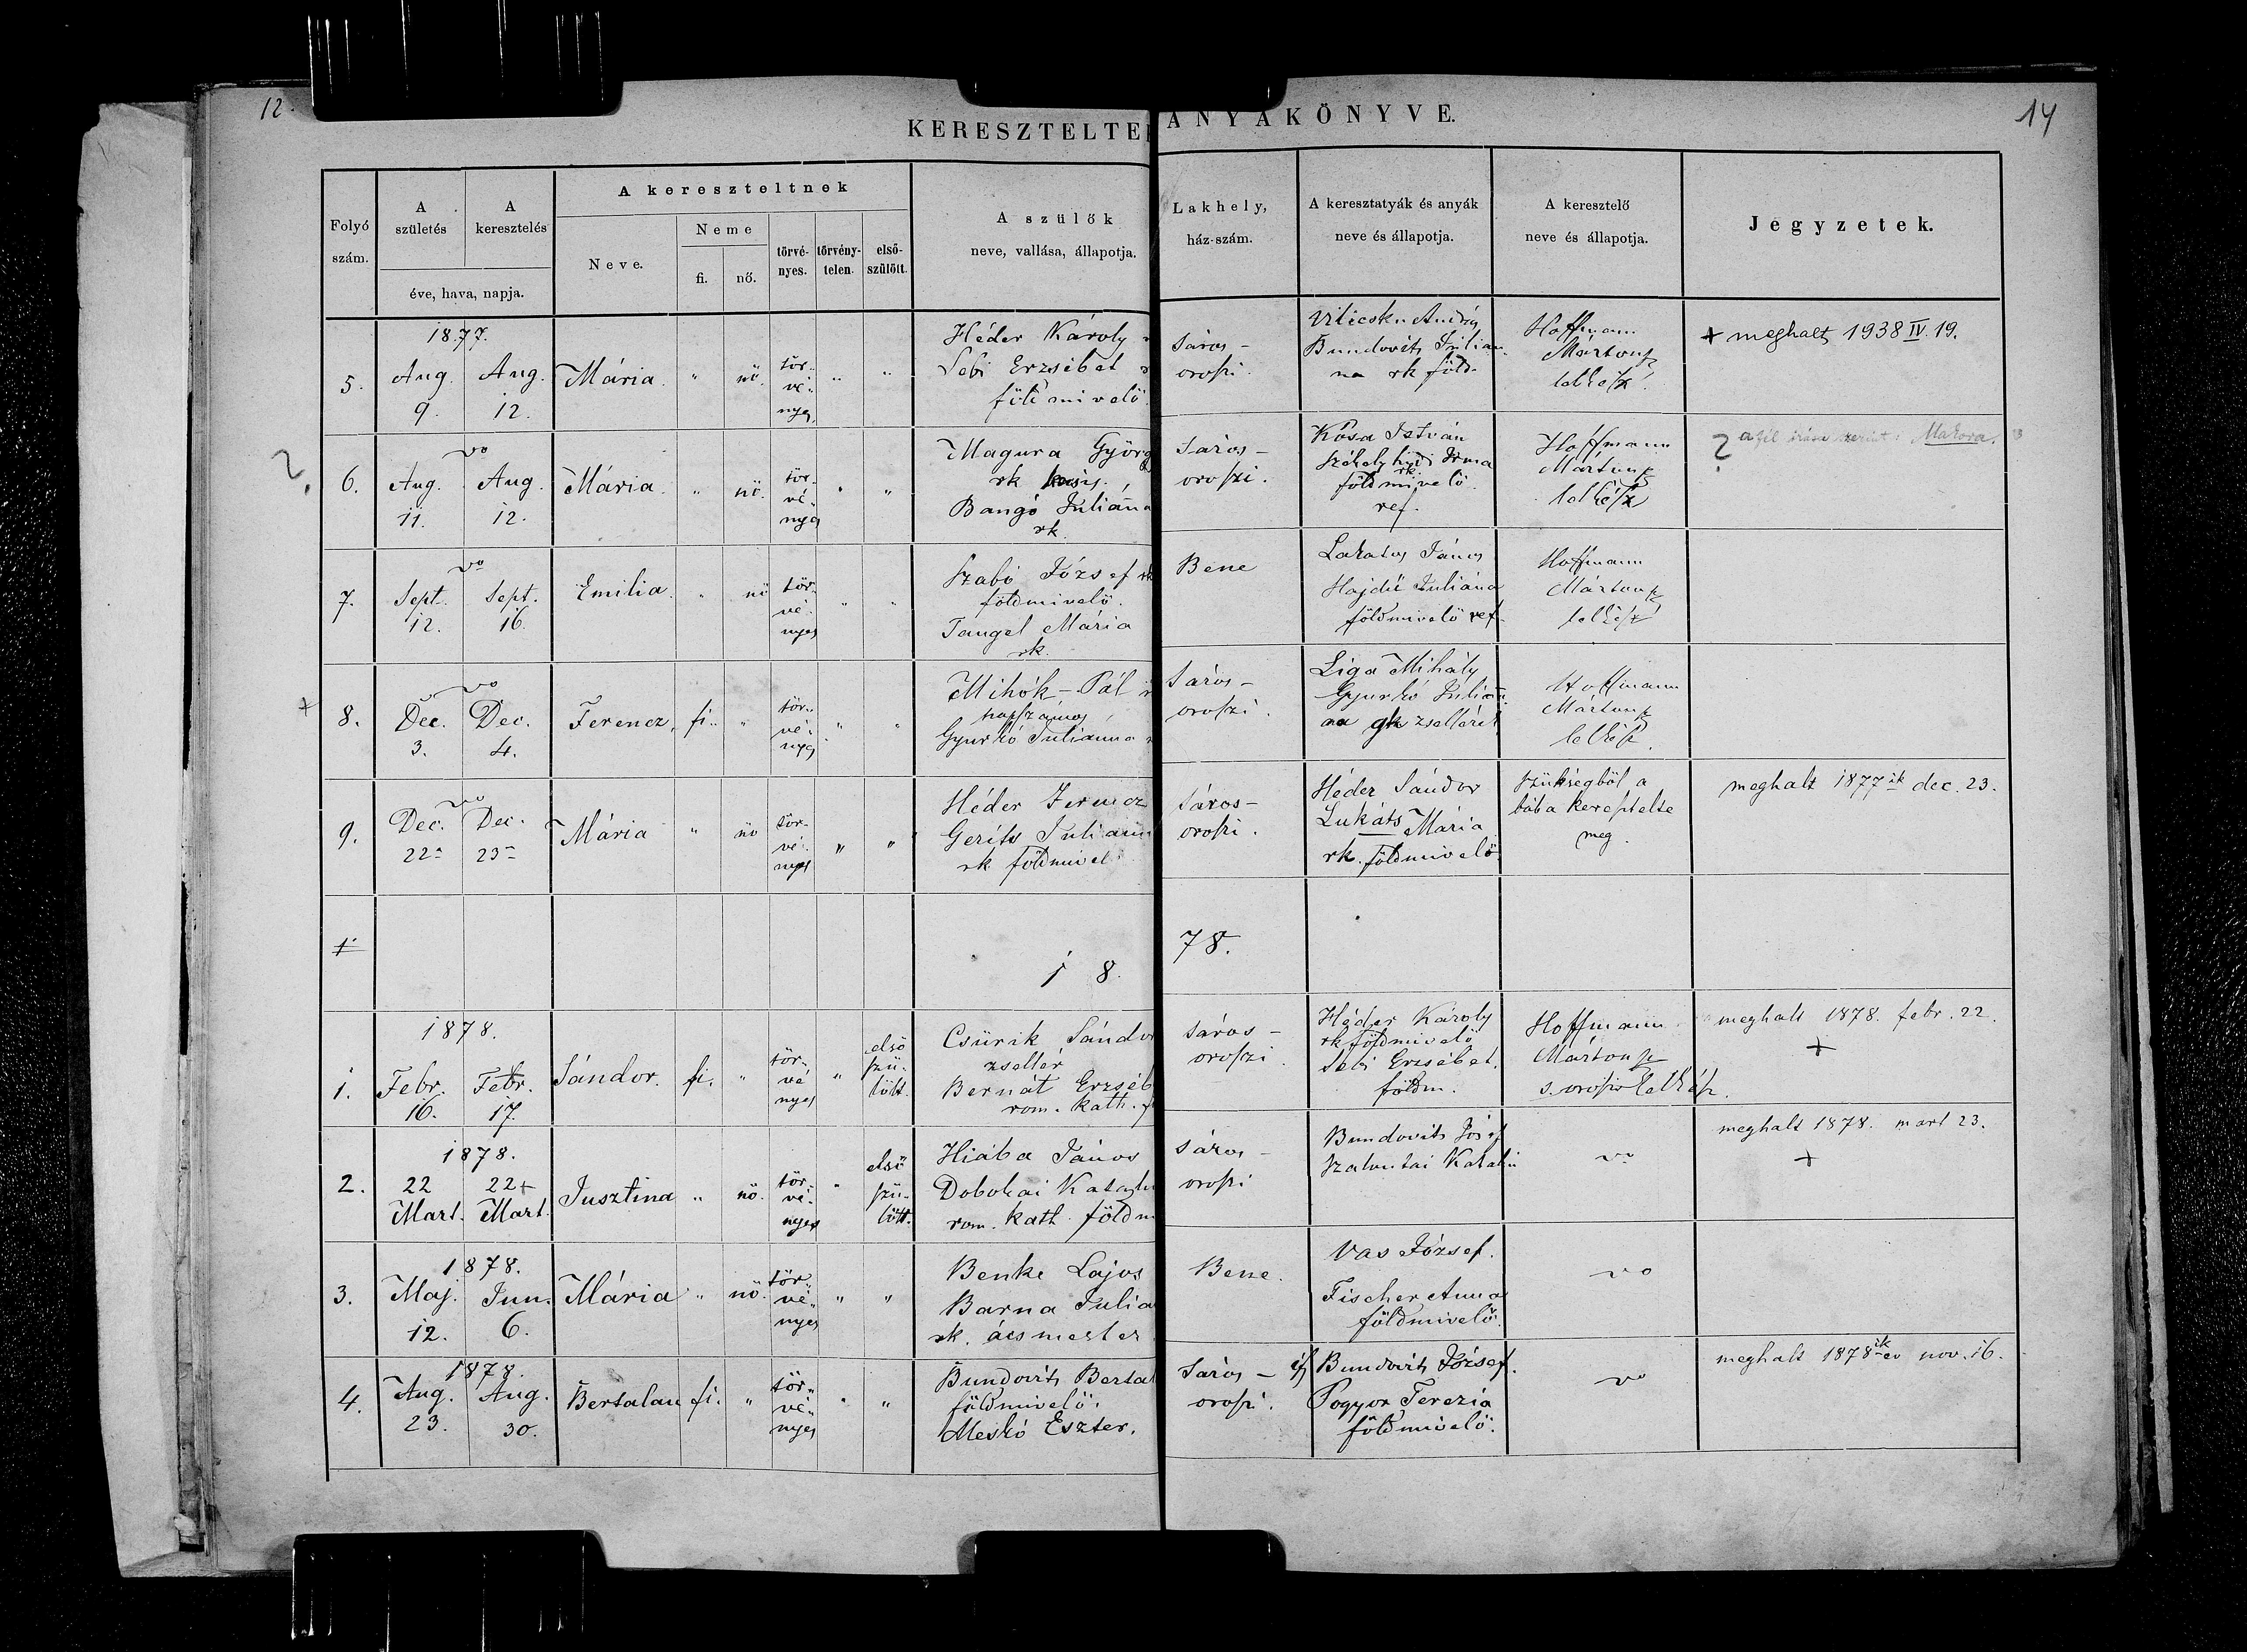 12.
14
KERESZTELTE
ANYAKÖNYVE.
Folyó szám.
A születés
A keresztelés
éve, hava, napja.
A kereszteltnek
Neve.
Neme
fi.
nő.
törvé-nyes.
törvény-telen.
első-szülött.
A szülők
neve, vallása, állapotja.
Lakhely,
ház-szám.
A keresztatyák és anyák
neve és állapotja.
A keresztelő
neve és állapotja.
Jegyzetek.
1877.
5. Aug. 9. Aug. 12. Mária. " nö. tör-vé-nyes " "
Héder Károly
Sebi Erzsébet
földmivelö.
Sáros-
oroszi.
Viticsku András
Bundovits Julian-
na rk föld-
Hoffmann
Márton
lelkész.
+ meghalt 1938 IV. 19.
? 6. vo Aug. 11. Aug. 12. Mária. " nö. tör-vé-nyes " "
Magura Györg
rk
Bangó Juliánna
rk.
Sáros-
oroszi.
Kósa István
Székelyhidi Irma
rk.
földmivelö
ref.
Hoffmann
Márton
lelkész
? Makora.
7. vo Sept. 12. Sept. 16. Emilia. " nö tör-vé-nyes " "
Szabó József rk
földmivelö.
Tangel Mária
rk.
Bene
Lakatos János
Hajdú Juliána
földmivelö ref.
Hoffmann
Márton
lelkész
+ 8. vo Dec. 3. Dec. 4. Ferencz, fi. " tör-vé-nyes " "
Mihók-Pál
napszámos
Gyurkó Julianna
Sáros-
oroszi.
Liga Mihály
Gyurkó Julián-
na gk zsellérek
Hoffmann
Márton
lelkész.
9. vo Dec. 22. Dec. 23. Mária " nö tör-vé-nyes " "
Héder Ferencz
Gerits Juliann
rk földmivel
Sáros-
oroszi.
Héder Sándor
Lukáts Mária
rk. földmivelö.
szükségböl a
bába keresztelte
meg.
meghalt 1877ik dec. 23.
1.
1 8 78.
1878.
1. Febr. 16. Febr. 17. Sándor. fi. " tör-vé-nyes " elsö szü-lött.
Csürik Sándor
zsellér
Bernát Erzséb
rom. kath.
Sáros-
oroszi.
Héder Károly
rk földmivelö
Sebi Erzsébet.
földm.
Hoffmann
Márton
s. oroszi lelkész.
meghalt 1878. febr. 22.
+
1878.
2. 22 Mart. 22+ Mart. Jusztina " nö. tör-vé-nyes " elsö szü-lött.
Hiába János
Dobokai Katalin
rom. kath. földm
Sáros-
oroszi
Bundovits József
Szalontai Katalin
vo
meghalt 1878. mart 23.
+
1878.
3. Maj. 12. Jun. 6. Mária " nö. tör-vé-nyes " "
Benke Lajos
Barna Julia
rk. ácsmester
Bene.
Vas József.
Fischer Anna
földmivelö.
vo
1878.
4. Aug. 23. Aug. 30. Bertalan fi. " tör-vé-nyes " "
Bundovits Bertal
földmivelö.
Meskó Eszter.
Sáros-
oroszi.
ifj Bundovits József.
Pogyor Terezia
földmivelö.
vo
meghalt 1878ik év nov. 16.